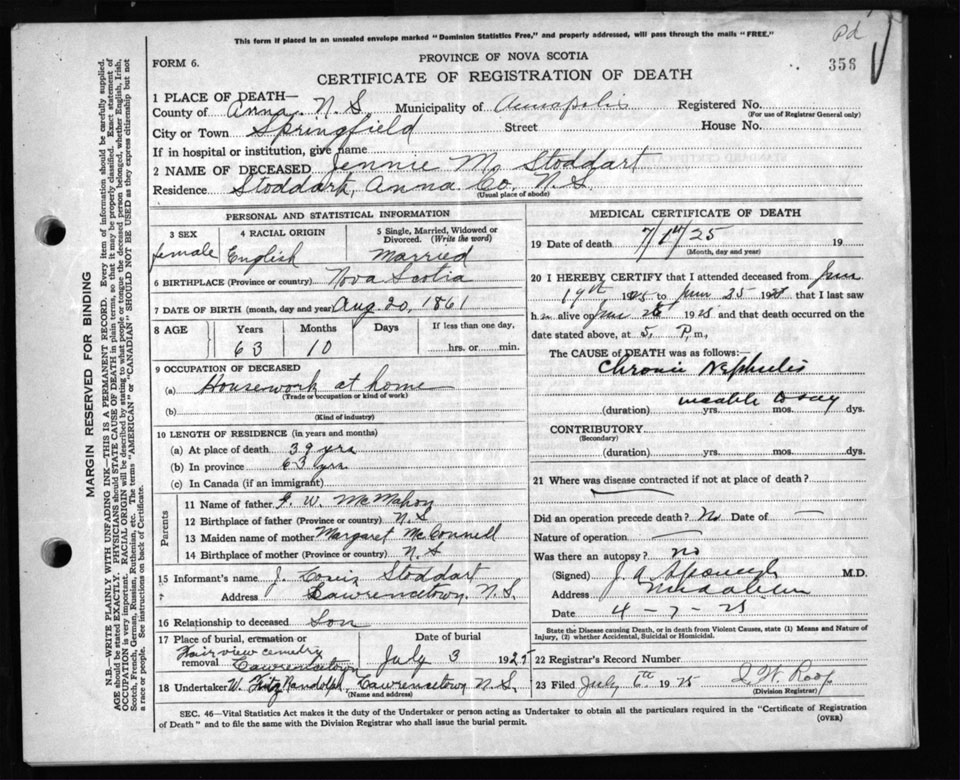 This form if placed in an unsealed envelope marked "Dominion Statistics Free," and properly addressed, will pass through the mails "FREE."
Pd
356
FORM 6.
PROVINCE OF NOVA SCOTIA
CERTIFICATE OF REGISTRATION OF DEATH
MARGIN RESERVED FOR BINDING
N.B.—WRITE PLAINLY WITH UNFADING INK—THIS IS A PERMANENT RECORD. Every item of information should be carefully supplied.
AGE should be stated EXACTLY. PHYSICIANS should STATE CAUSE OF DEATH in plain terms, so that it may be properly classified. Exact statement of
OCCUPATION is very important. RACIAL ORIGIN will be described by stating to what people or tongue the deceased person belonged, whether English, Irish,
Scotch, French, German, Russian, Ruthenian, etc. The terms "AMERICAN" or "CANADIAN" SHOULD NOT BE USED as they express citizenship but not
a race or people. See instructions on back of Certificate.
1 PLACE OF DEATH—
County of Anna. N.S. Municipality of Annapolis Registered No.
(For use of Registrar General only)
City or Town Springfield Street House No.
If in hospital or institution, give name
2 NAME OF DECEASED Jennie M. Stoddart
Residence Stoddart, Anna. Co. N.S.
(Usual place of abode)
PERSONAL AND STATISTICAL INFORMATION
3 SEX 4 RACIAL ORIGIN 5 Single, Married, Widowed or Divorced. (Write the word)
female English Married
6 BIRTHPLACE (Province or country) Nova Scotia
7 DATE OF BIRTH (month, day and year) Aug 20, 1861
8 AGE Years Months Days If less than one day,
63 10 hrs. or min.
9 OCCUPATION OF DECEASED
(a) Housework at home
(Trade or occupation or kind of work)
(b)
(Kind of industry)
10 LENGTH OF RESIDENCE (in years and months)
(a) At place of death 39 yrs
(b) In province 63 yrs
(c) In Canada (if an immigrant)
Parents
11 Name of father W. McMahon
12 Birthplace of father (Province or country) N.S
13 Maiden name of mother Margaret McConnell
14 Birthplace of mother (Province or country) N.S
15 Informant's name J. Louis Stoddart
Address Lawrencetown, N.S.
16 Relationship to deceased Son
17 Place of burial, cremation or removal Date of burial
Fairview cemetry
Lawrencetown July 3 1925
18 Undertaker W. Fitz Randolph, Lawrencetown N.S.
(Name and address)
MEDICAL CERTIFICATE OF DEATH
19 Date of death 7/1st/25 19
(Month, day and year)
20 I HEREBY CERTIFY that I attended deceased from June
19th 1925 to June 25 192 that I last saw
h alive on June 1925 and that death occurred on the
date stated above, at 5 P. m,
The CAUSE of DEATH was as follows:—
Chronic Nephritis
(duration) unable to say yrs. mos. dys.
CONTRIBUTORY
(Secondary)
(duration) yrs. mos. dys.
21 Where was disease contracted if not at place of death?
Did an operation precede death? No Date of
Nature of operation
Was there an autopsy? no
(Signed) J. A. M.D.
Address
Date 4 - 7 - 25
State the Disease causing Death, or in death from Violent Causes, state (1) Means and Nature of
Injury, (2) whether Accidental, Suicidal or Homicidal.
22 Registrar's Record Number
23 Filed July 6th 1925 W. Roop
(Division Registrar)
SEC. 46—Vital Statistics Act makes it the duty of the Undertaker or person acting as Undertaker to obtain all the particulars required in the "Certificate of Registration
of Death" and to file the same with the Division Registrar who shall issue the burial permit.
(OVER)